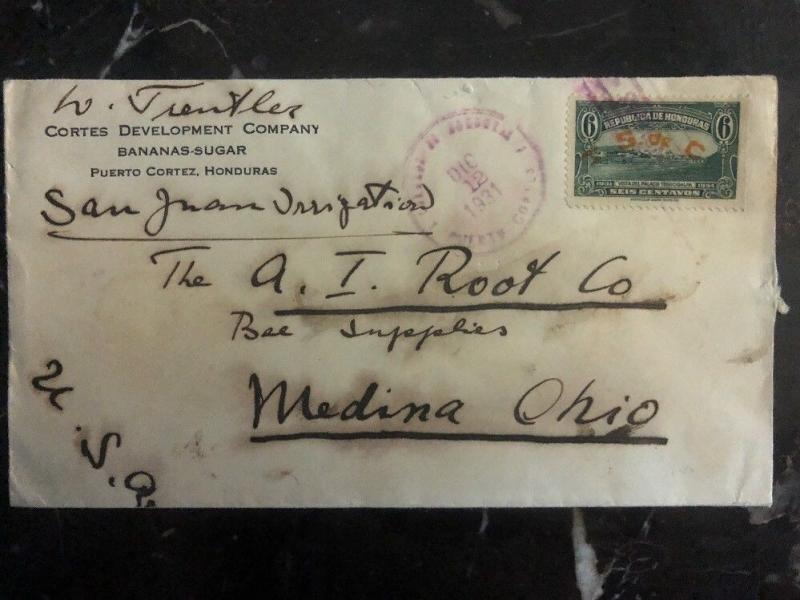 W. Trentler
CORTES DEVELOPMENT COMPANY
BANANAS-SUGAR
PUERTO CORTEZ, HONDURAS
San Juan Irrigation
DIC
12
1931
PUERTO
6 REPUBLICA DE HONDURAS 6
S. de C
1931 1934
SEIS CENTAVOS
The A. I. Root Co
Bee Supplies
Medina Ohio
U. S. A.